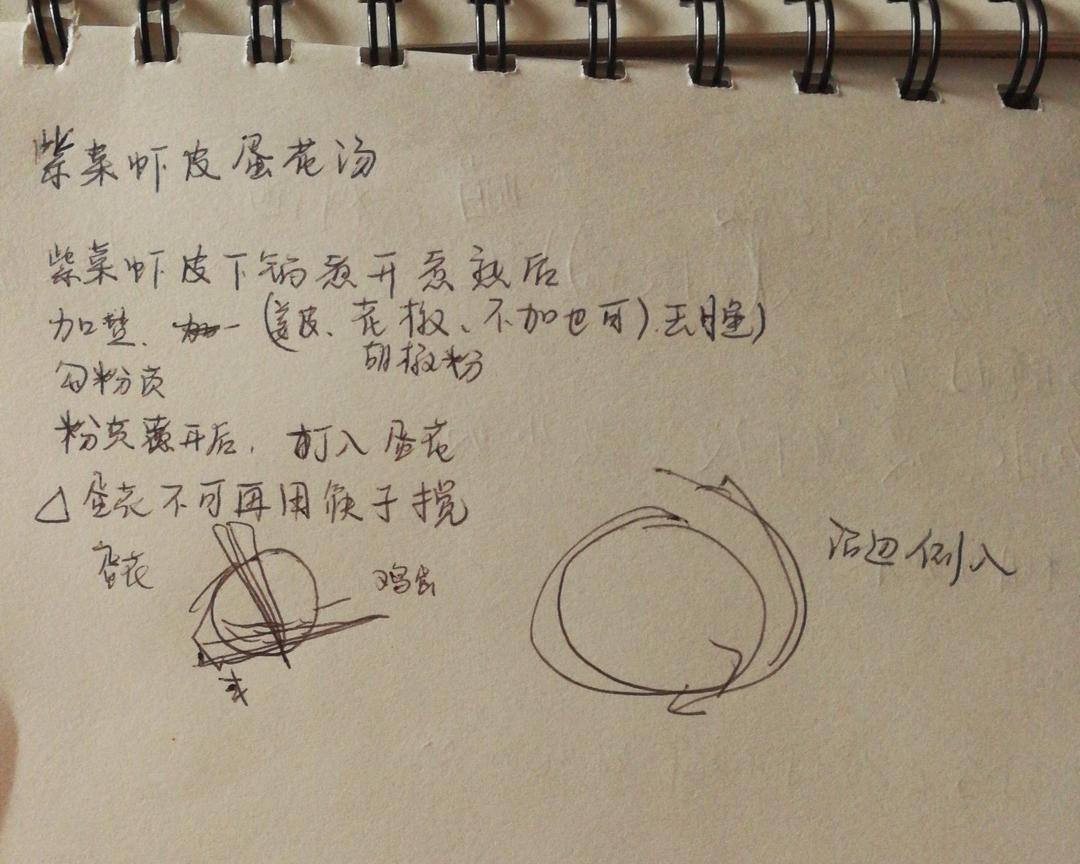 紫菜虾皮蛋花汤
紫菜虾皮下锅煮开煮熟后
加盐、(姜皮、花椒、不加也可)去腥)
胡椒粉
勾粉芡
粉芡煮开后,打入蛋花
△蛋花不可再用筷子搅
蛋花
鸡蛋
沿边倒入